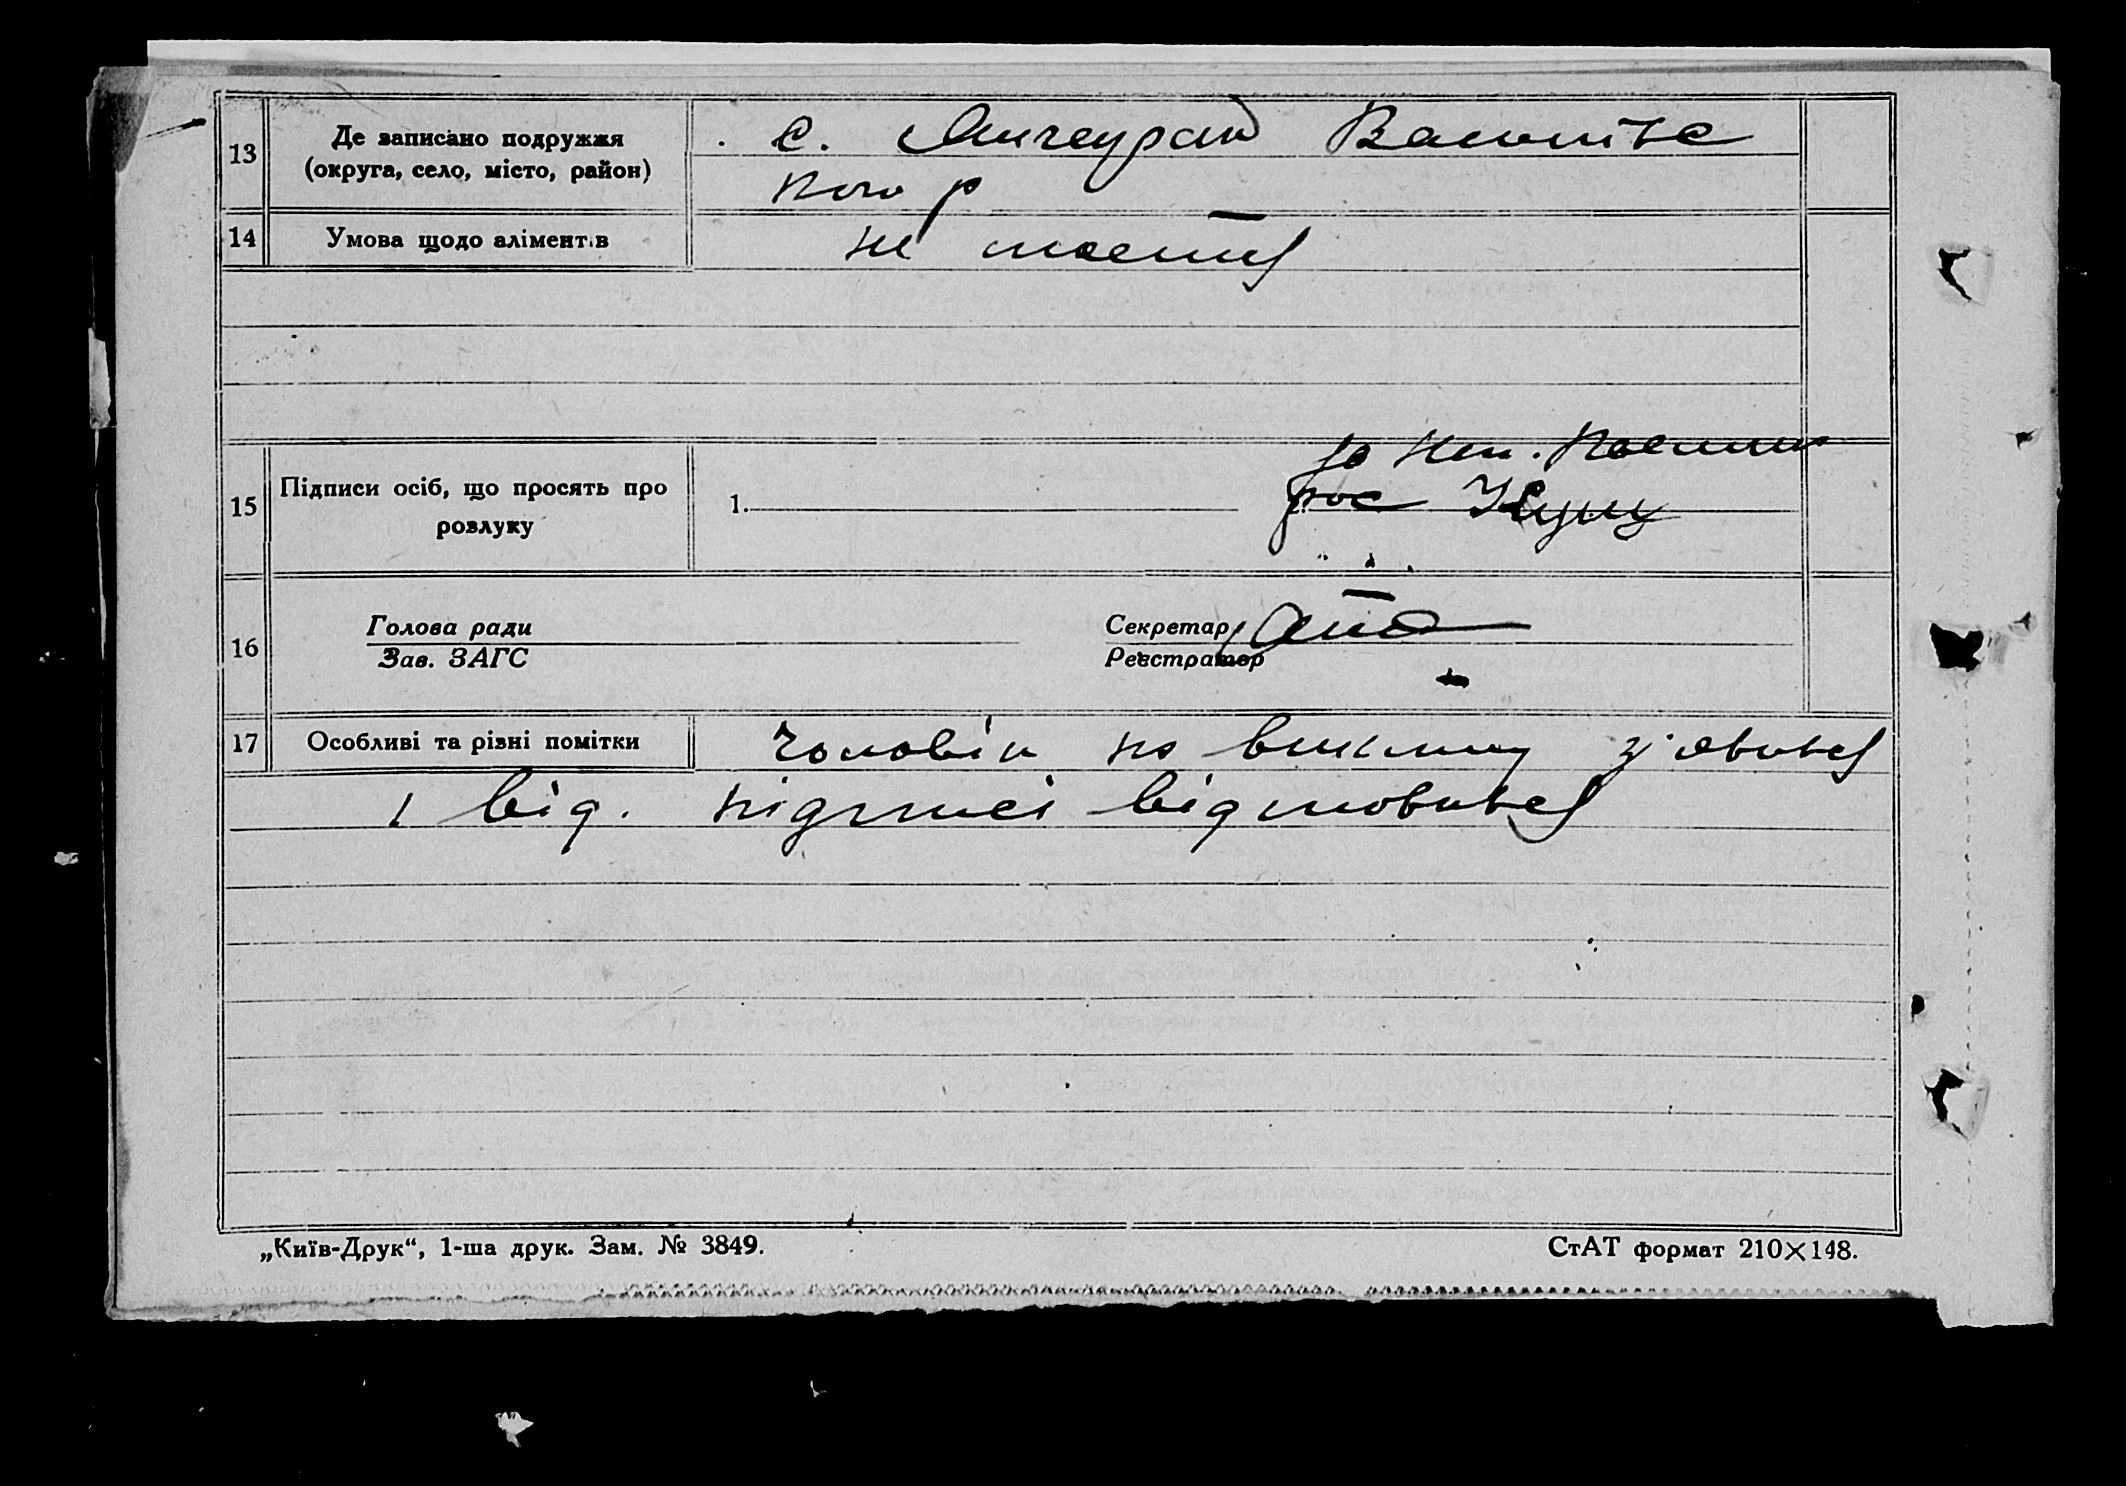 13 Де записано подружжя
(округа, село, місто, район)
с.
ного р
14 Умова щодо аліментів
не мається
15 Підписи осіб, що просять про
розлуку
1.
за неп.
рос Куш
16 Голова ради
Зав. ЗАГС
Секретар
Реєстратор
17 Особливі та різні помітки
чоловік на виклику з'явився
і від. підписі відмовився
„Київ-Друк“, 1-ша друк. Зам. № 3849.
СтАТ формат 210×148.